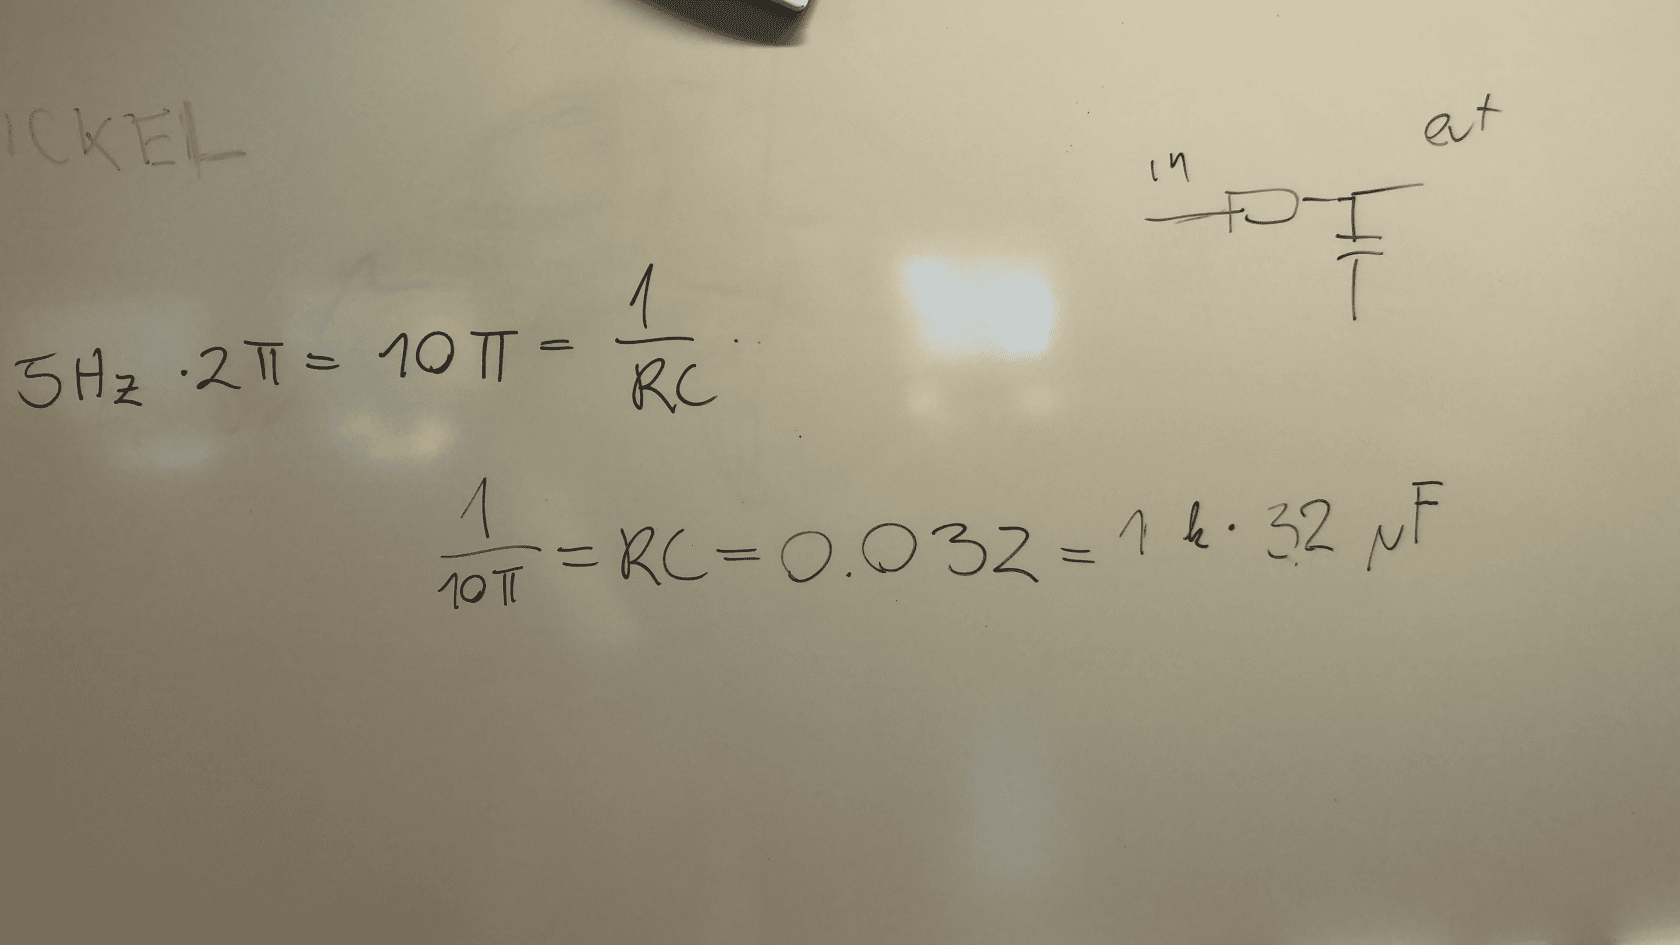 ICKEL
in
out
5Hz · 2π = 10π = 1/RC
1/10π = RC = 0.032 = 1k · 32 μF